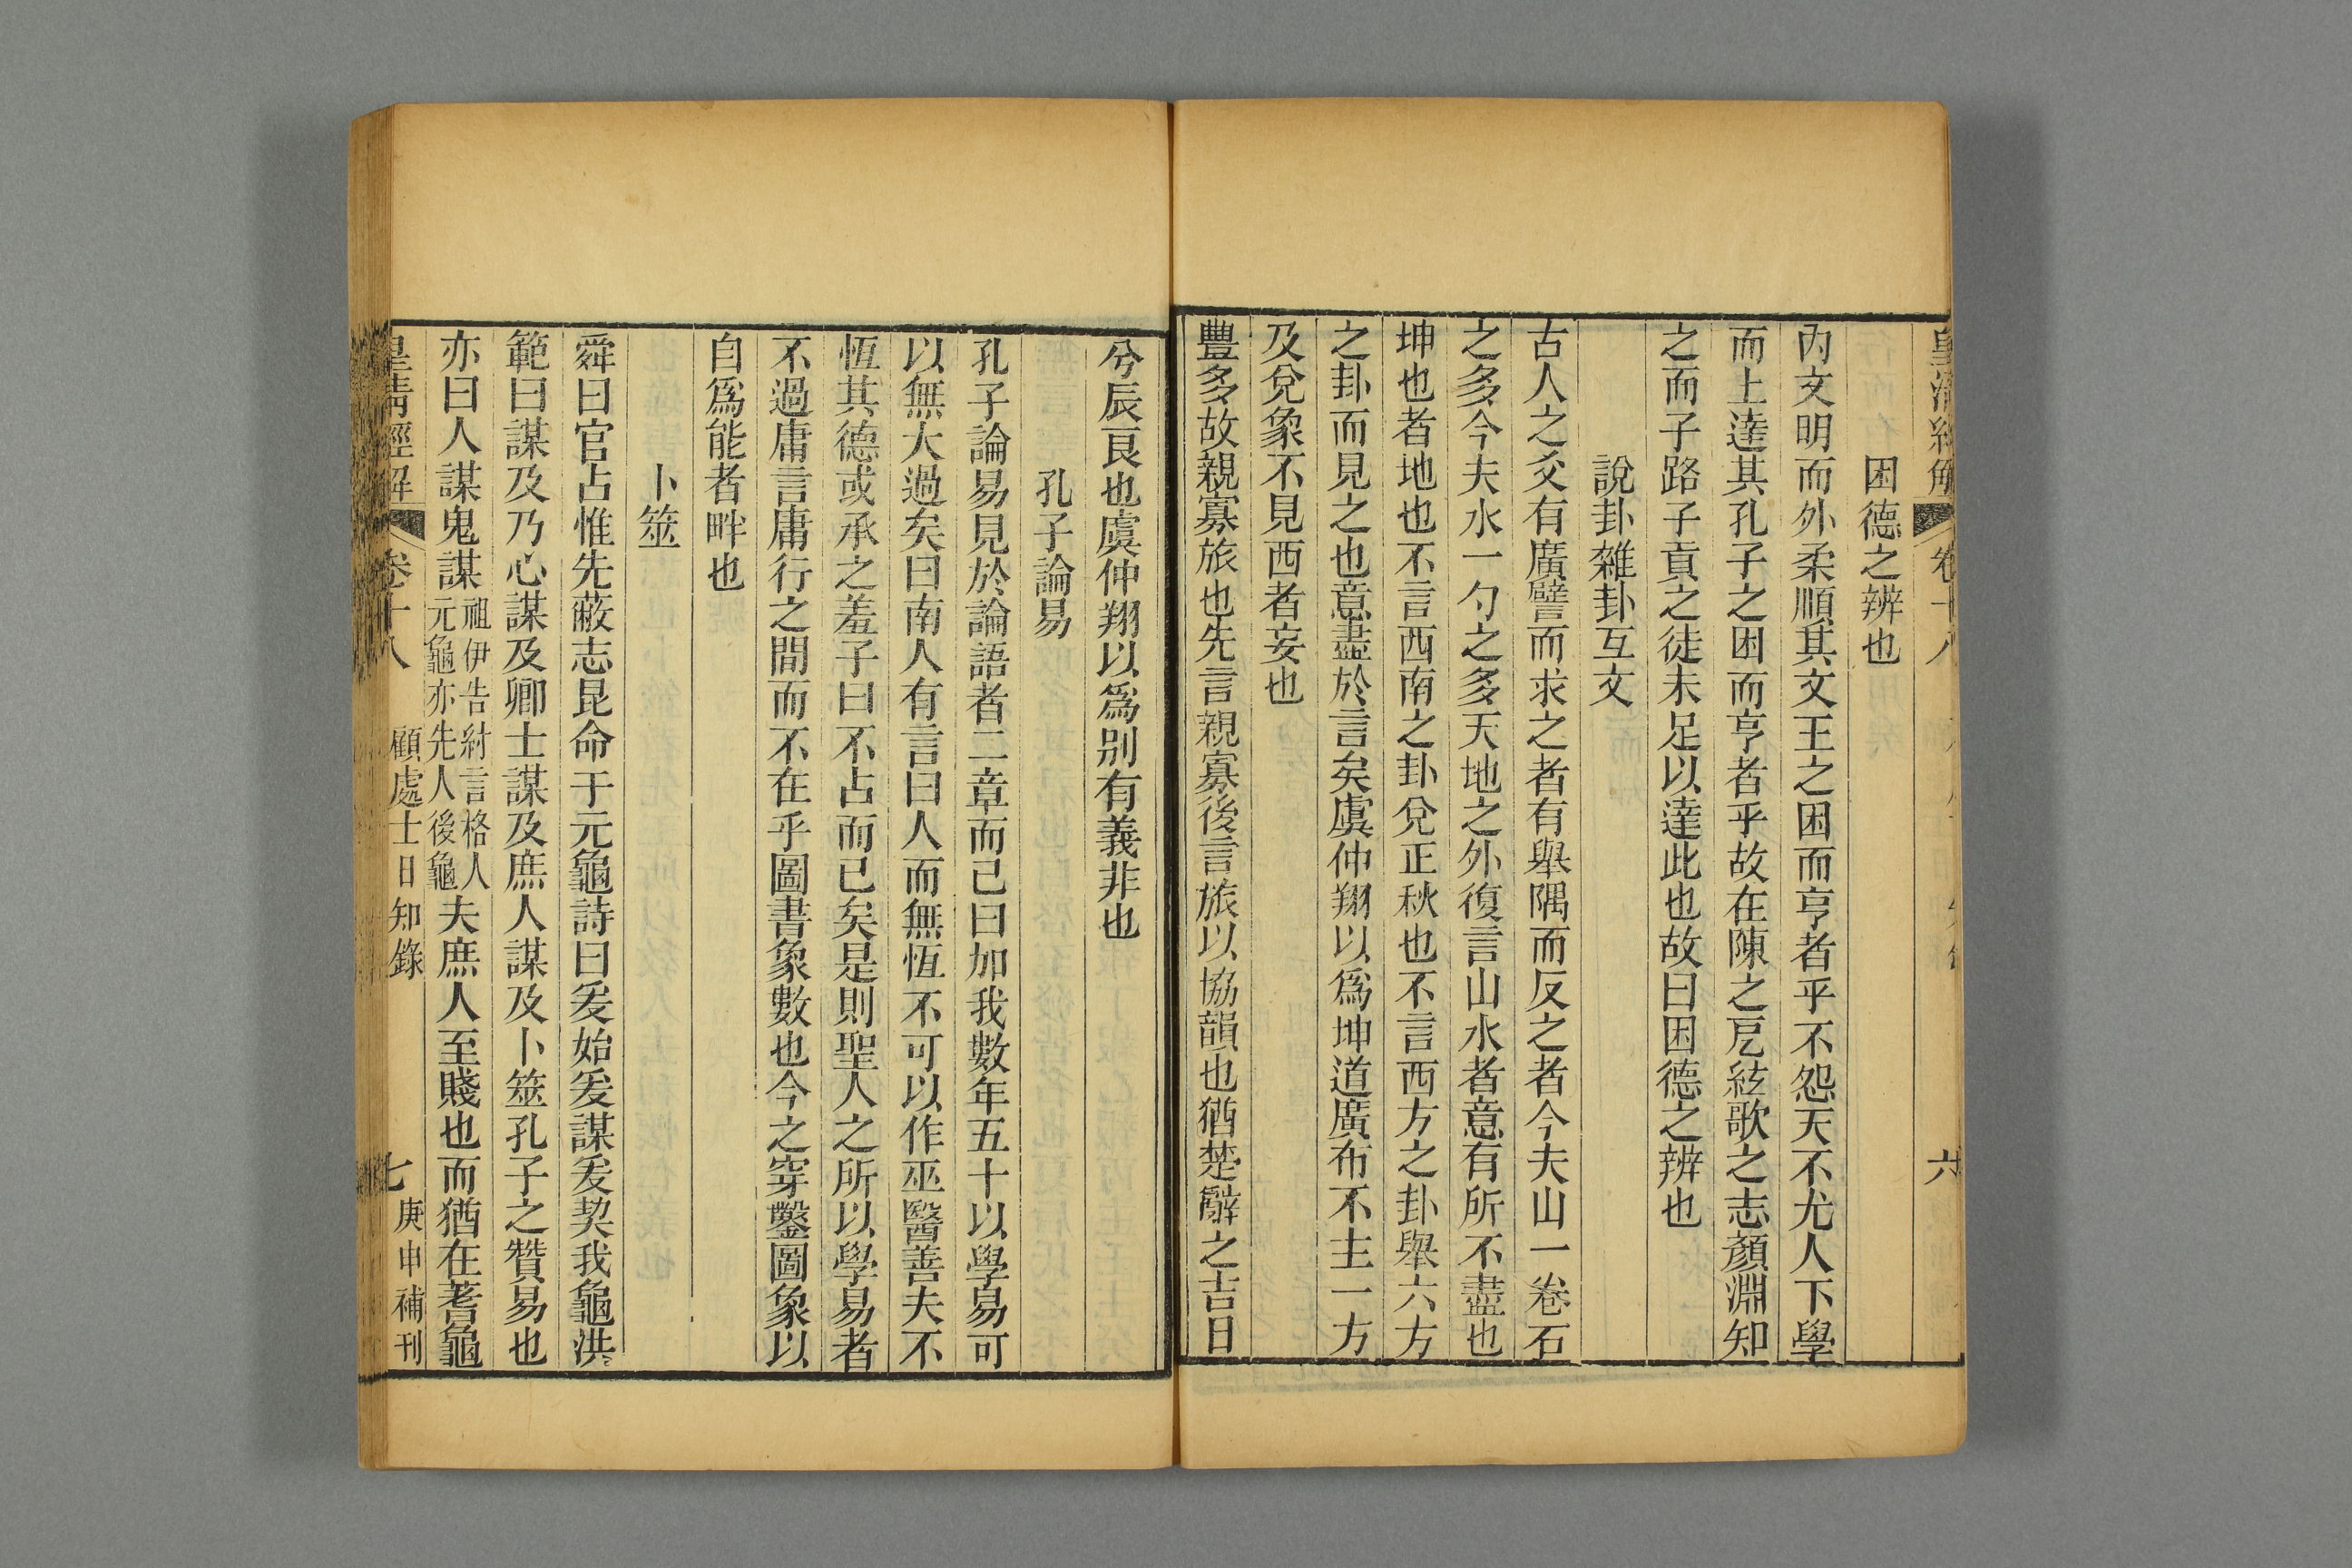 皇清經解 卷十八 六
困德之辨也
內文明而外柔順其文王之困而亨者乎不怨天不尤人下學
而上達其孔子之困而亨者乎故在陳之戹絃歌之志顏淵知
之而子路子貢之徒未足以達此也故曰困德之辨也
說卦雜卦互文
古人之文有廣譬而求之者有舉隅而反之者今夫山一卷石
之多今夫水一勺之多天地之外復言山水者意有所不盡也
坤也者地也不言西南之卦兌正秋也不言西方之卦舉六方
之卦而見之也意盡於言矣虞仲翔以爲坤道廣布不主一方
及兌象不見西者妄也
豐多故親寡旅也先言親寡後言旅以協韻也猶楚辭之吉日
兮辰良也虞仲翔以爲别有義非也
孔子論易
孔子論易見於論語者二章而己曰加我數年五十以學易可
以無大過矣曰南人有言曰人而無恆不可以作巫醫善夫不
恆其德或承之羞子曰不占而已矣是則聖人之所以學易者
不過庸言庸行之間而不在乎圖書象數也今之穿鑿圖象以
自爲能者畔也
卜筮
舜曰官占惟先蔽志昆命于元龜詩曰爰始爰謀爰契我龜洪
範曰謀及乃心謀及卿士謀及庶人謀及卜筮孔子之贊易也
亦曰人謀鬼謀祖伊告紂言格人元龜亦先人後龜夫庶人至賤也而猶在蓍龜
皇清經解 卷十八 顧處士日知錄 七 庚申補刊